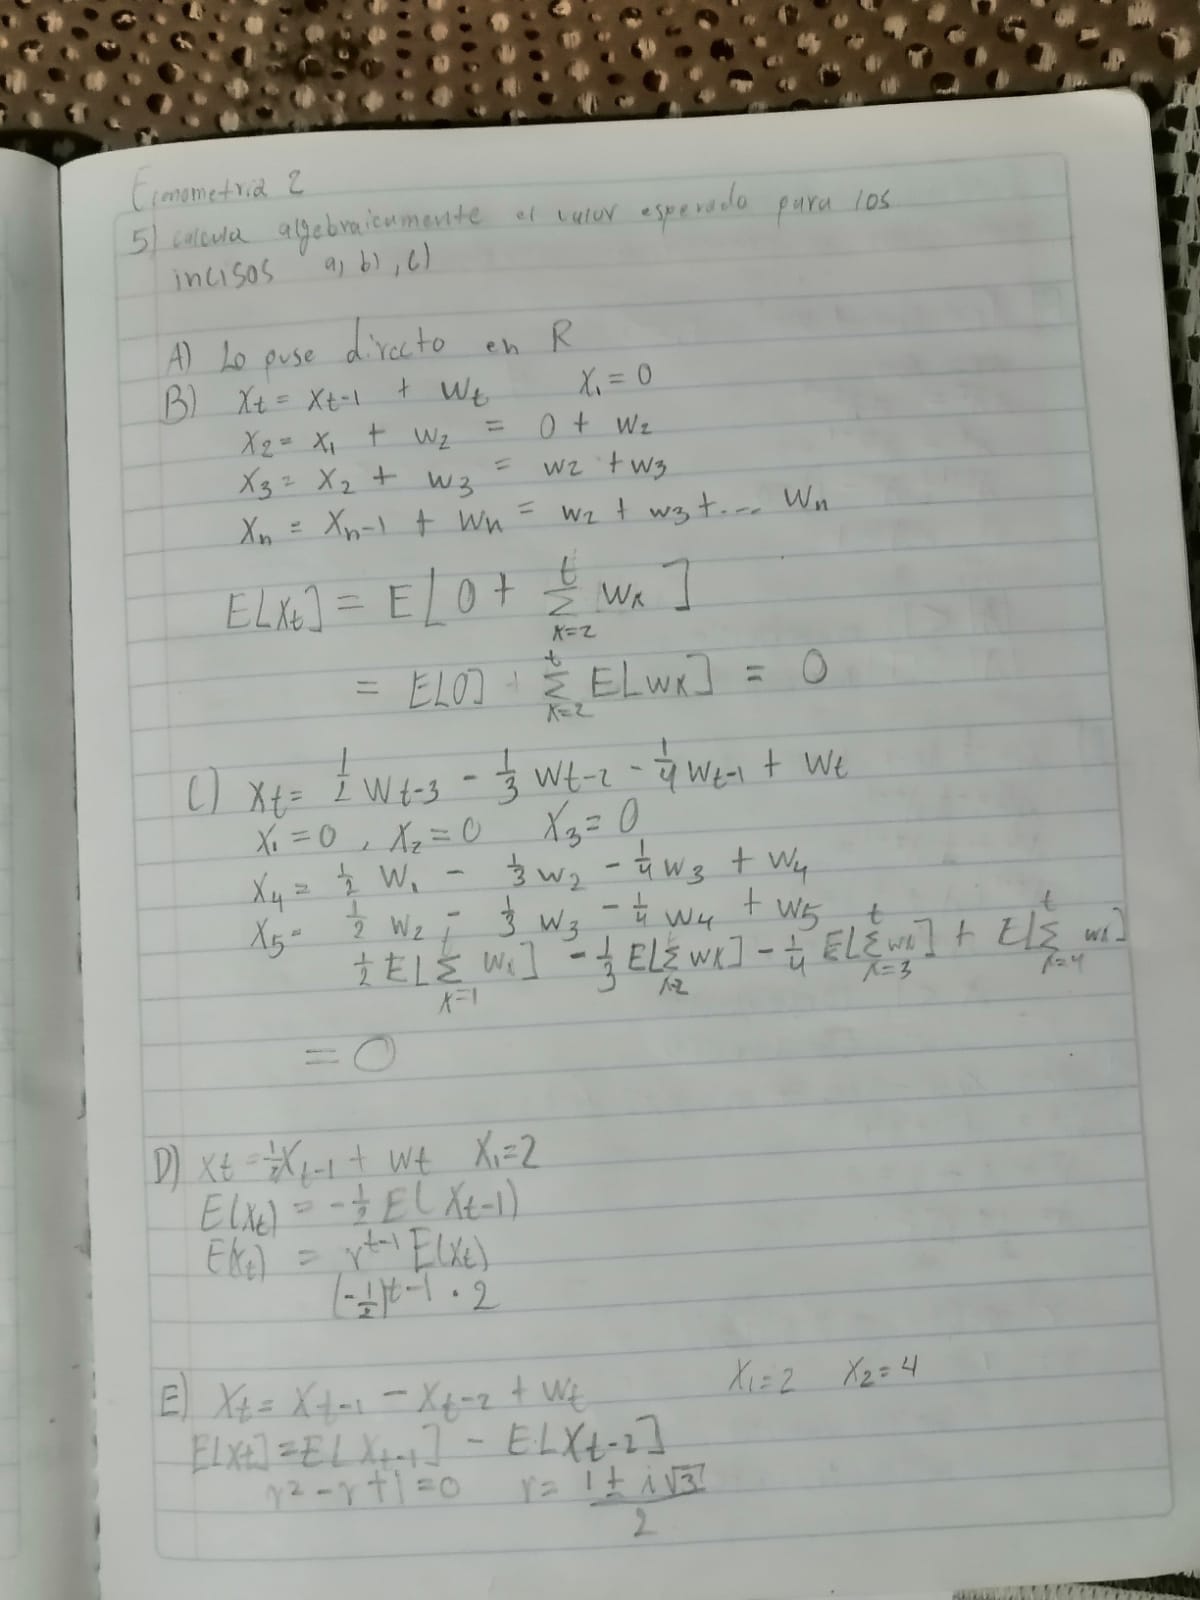 Econometria 2
5) calcula algebraicamente el valor esperado para los
incisos a), b), c)
A) Lo puse directo en R
B) Xt = Xt-1 + Wt X₁ = 0
X₂ = X₁ + W₂ = 0 + W₂
X₃ = X₂ + W₃ = W₂ + W₃
Xn = Xn-1 + Wn = W₂ + W₃ + ... Wn
E[Xt] = E[0 + Σ_{k=2}^{t} Wk]
= E[0] + Σ_{k=2}^{t} E[Wk] = 0
C) Xt = 1/2 Wt-3 - 1/3 Wt-2 - 1/4 Wt-1 + Wt
X₁ = 0, X₂ = 0 X₃ = 0
X₄ = 1/2 W₁ - 1/3 W₂ - 1/4 W₃ + W₄
X₅ = 1/2 W₂ - 1/3 W₃ - 1/4 W₄ + W₅
1/2 E[Σ_{k=1} Wk] - 1/3 E[Σ_{k=2} Wk] - 1/4 E[Σ_{k=3}^{t} Wk] + E[Σ_{k=4}^{t} Wk]
= 0
D) Xt = -1/2 Xt-1 + Wt X₁ = 2
E(Xt) = -1/2 E(Xt-1)
E(Xt) = r^{t-1} E(Xt)
(-1/2)^{t-1} · 2
E) Xt = Xt-1 - Xt-2 + Wt X₁ = 2 X₂ = 4
E[Xt] = E[Xt-1] - E[Xt-2]
r² - r + 1 = 0 r = (1 ± i√3)/2